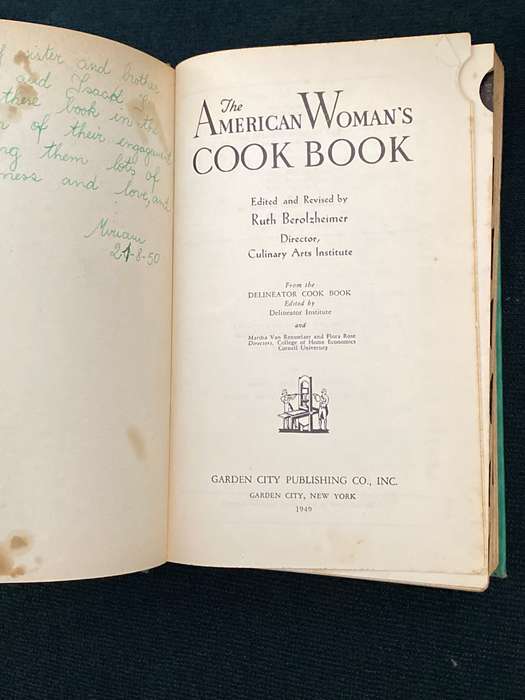 sister and brother
and Isack
these book in the
of their engagement
them lots of
and love, and
Miriam
21-8-50
The
AMERICAN WOMAN'S
COOK BOOK
Edited and Revised by
Ruth Berolzheimer
Director,
Culinary Arts Institute
From the
DELINEATOR COOK BOOK
Edited by
Delineator Institute
and
Martha Van Rensselaer and Flora Rose
Directors, College of Home Economics
Cornell University
GARDEN CITY PUBLISHING CO., INC.
GARDEN CITY, NEW YORK
1949